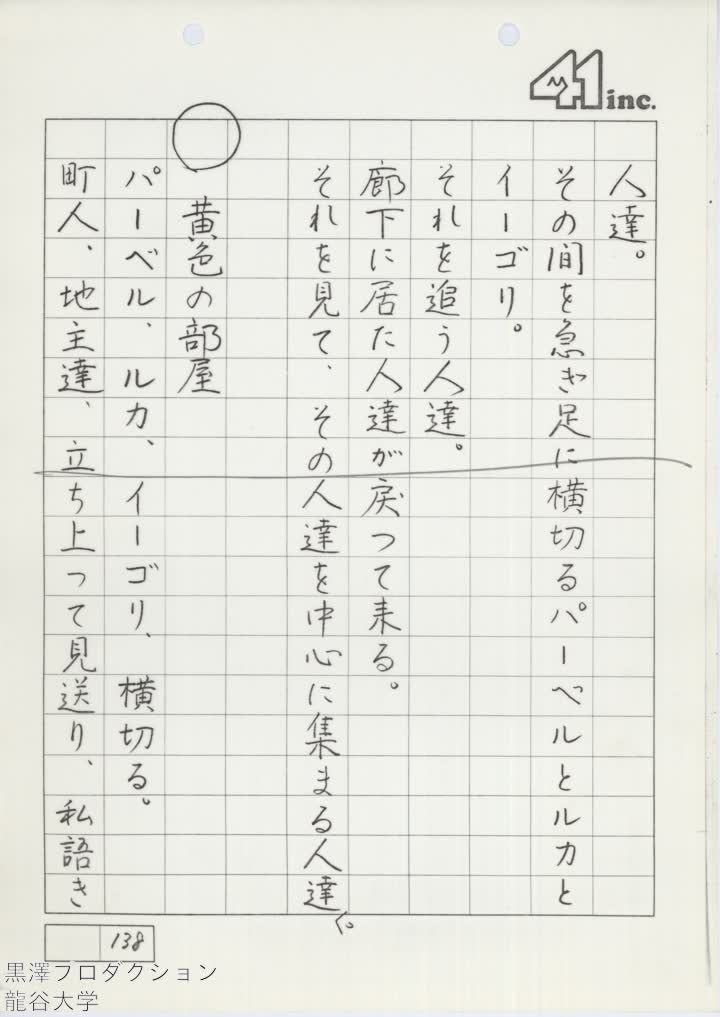 41 inc.
人達。
その間を急ぎ足に横切るパーベルとルカと
イーゴリ。
それを追う人達。
廊下に居た人達が戻って来る。
それを見て、その人達を中心に集まる人達。
黄色の部屋
パーベル、ルカ、イーゴリ、横切る。
町人、地主達、立ち上って見送り、私語き
138
黒澤プロダクション
龍谷大学